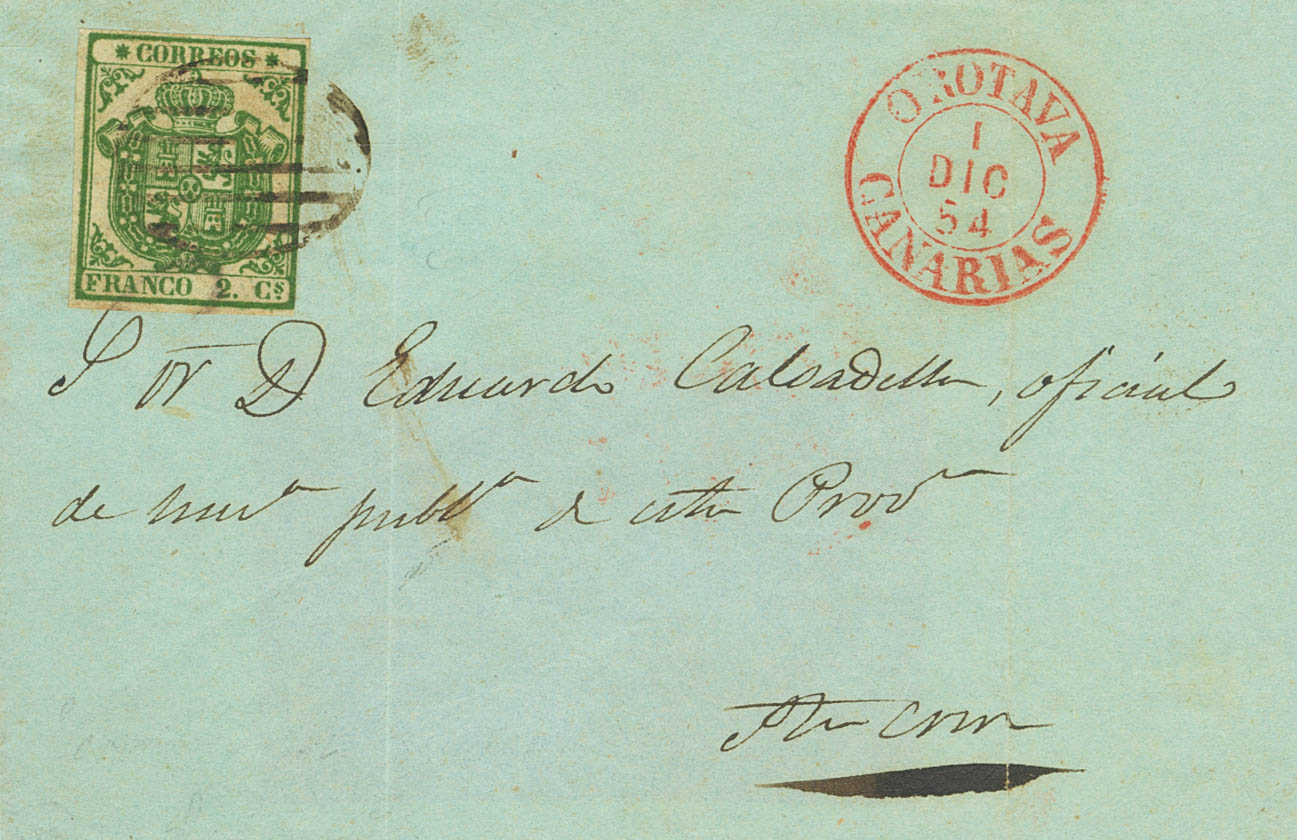 * CORREOS *
FRANCO 2. Cs
OROTAVA
1
DIC
54
CANARIAS
Sor D Eduardo Calsadilla, oficial
de publa de esta Prova
Sta Cruz